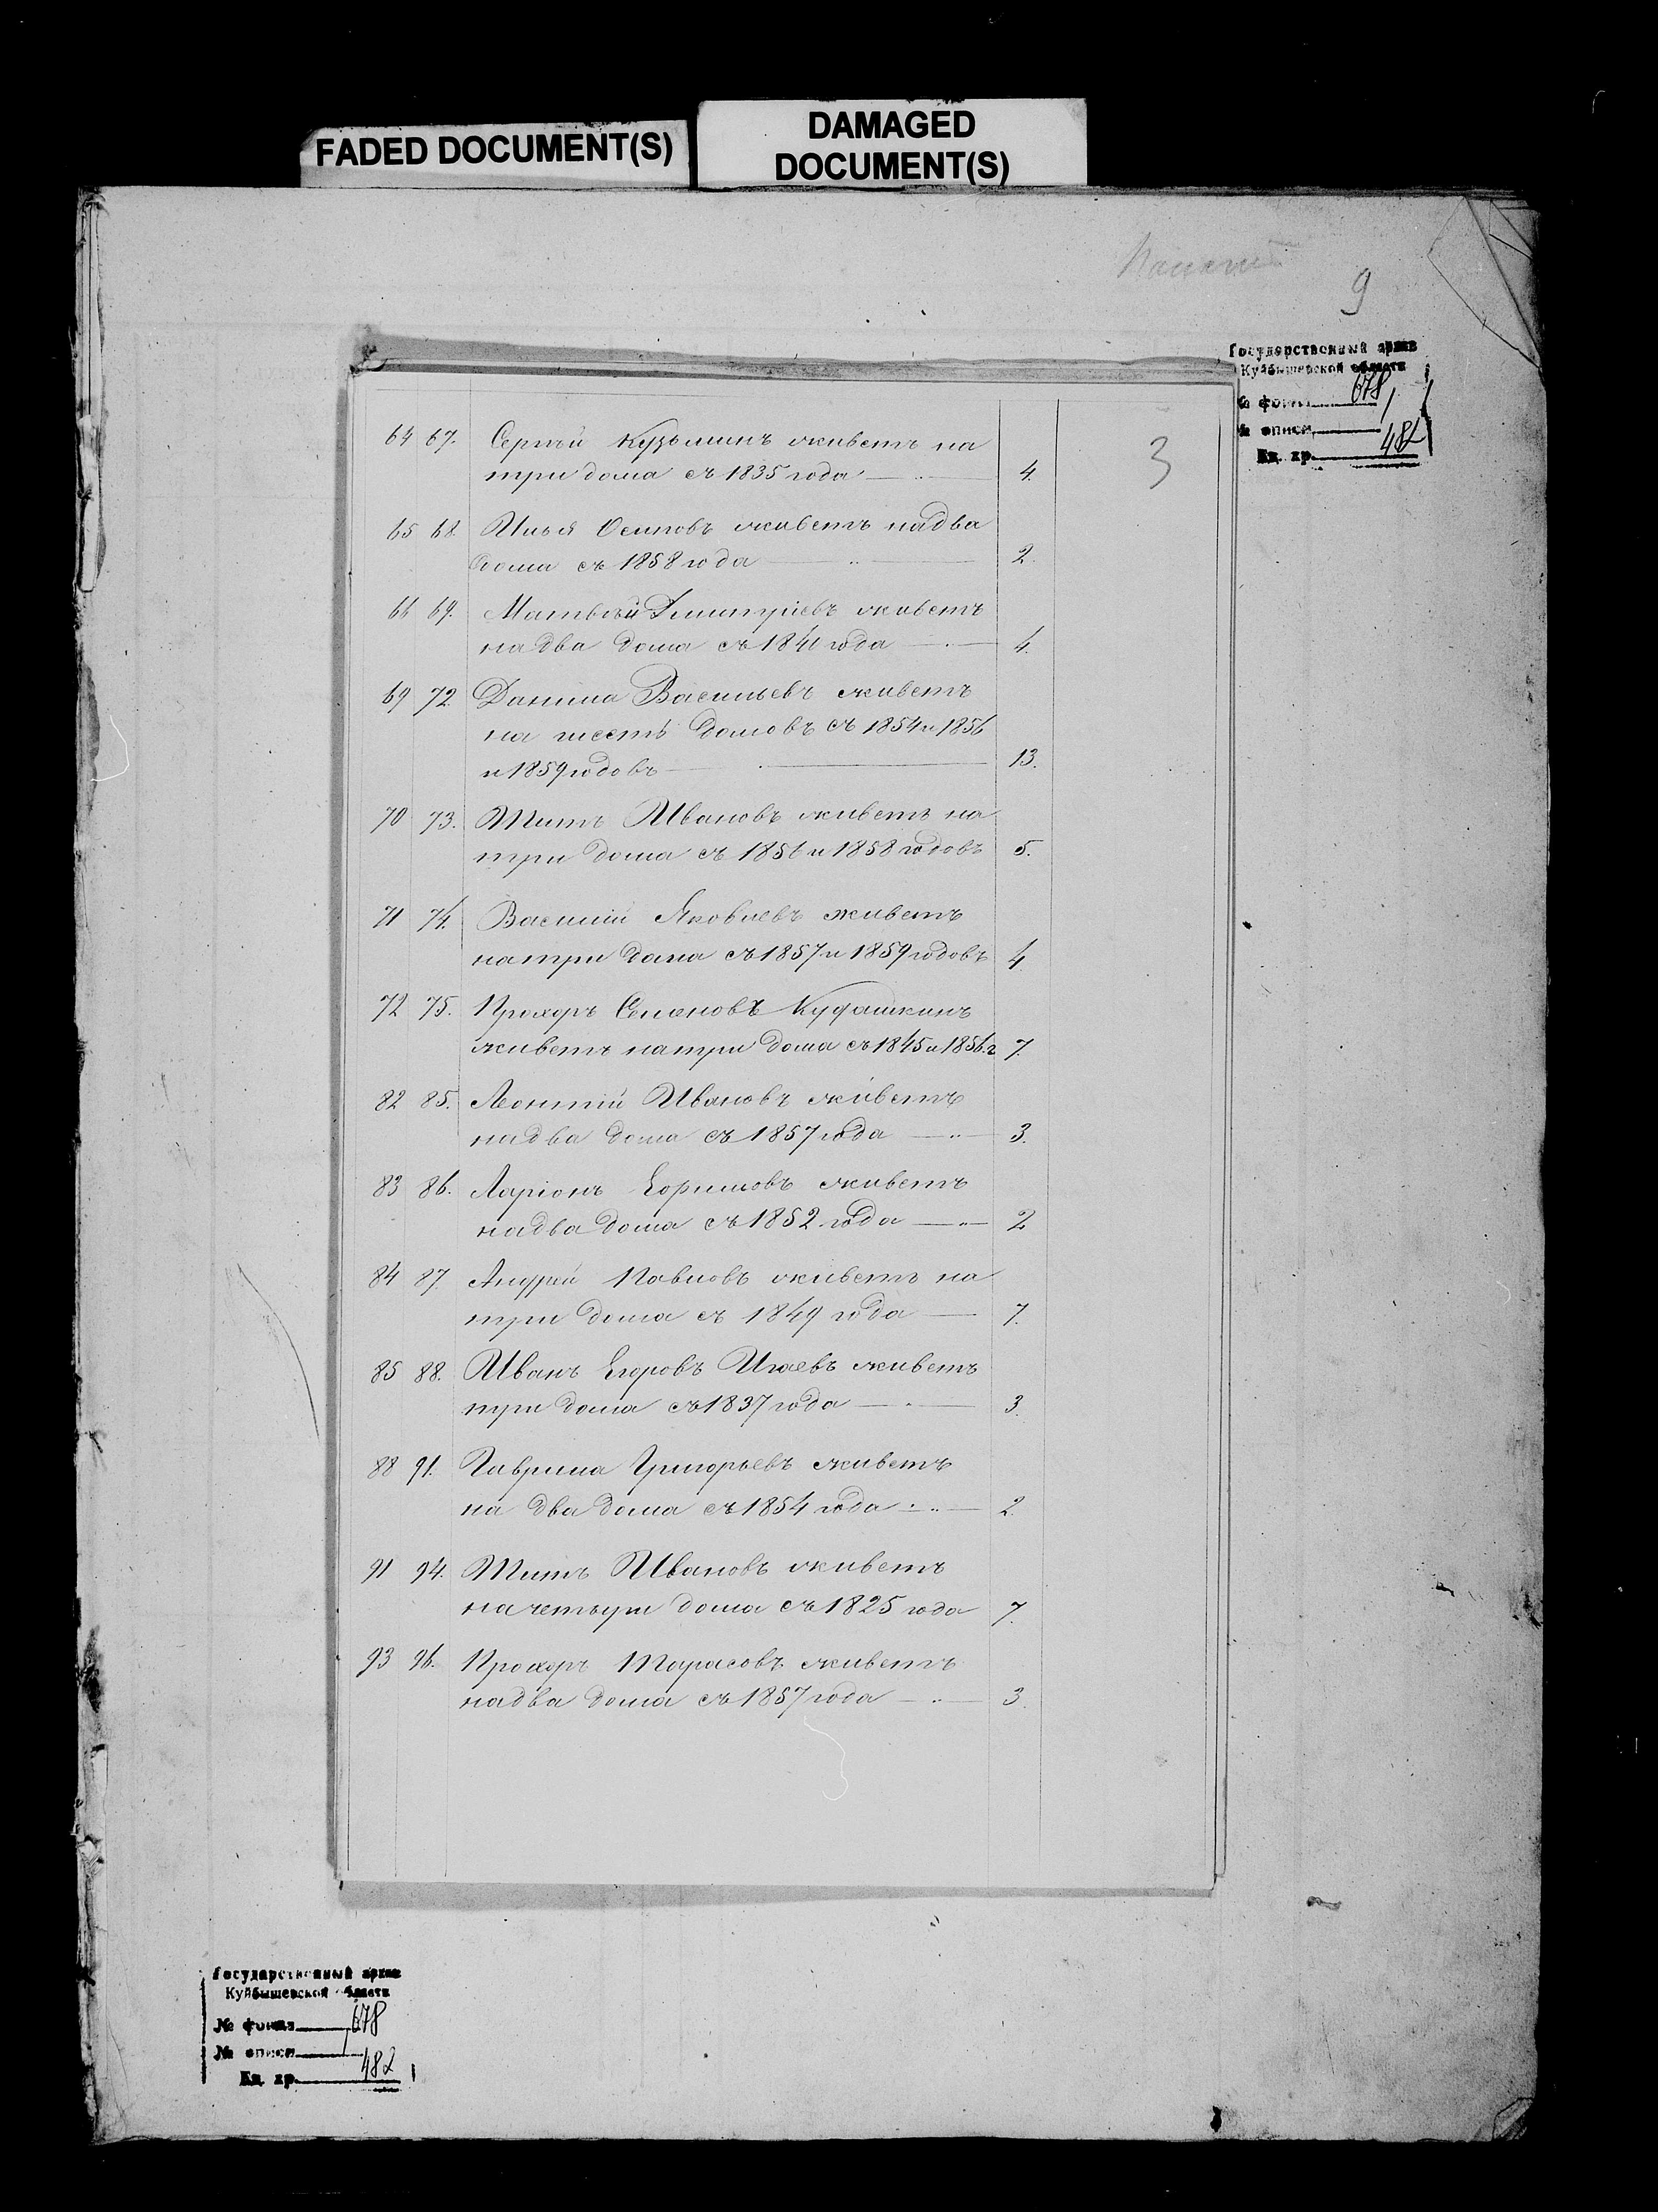 FADED DOCUMENT(S)
DAMAGED
DOCUMENT(S)
9
Государственный архив
Куйбышевской области
№ фонда 678
№ описи 1
Ед. хр. 482
3
64 67. Сергѣй Кузьминъ живетъ на
три дома съ 1835 года 4.
65 68. Илья Осиповъ живетъ на два
дома съ 1858 года 2.
66 69. Матвѣй Дмитріевъ живетъ
на два дома съ 1840 года 4.
69 72. Данила Васильевъ живетъ
на шесть домовъ съ 1854 и 1856
и 1859 годовъ 13.
70 73. Титъ Ивановъ живетъ на
три дома съ 1856 и 1858 годовъ 5.
71 74. Василій Яковлевъ живетъ
на три дома съ 1857 и 1859 годовъ 4.
72 75. Прохоръ Семеновъ Кудашкинъ
живетъ на три дома съ 1845 и 1856 г 7.
82 85. Леонтій Ивановъ живетъ
на два дома съ 1857 года 3.
83 86. Ларіонъ Ефимовъ живетъ
на два дома съ 1852 года 2
84 87. Андрей Павловъ живетъ на
три дома съ 1849 года 7.
85 88. Иванъ Егоровъ живетъ
три дома съ 1837 года 3.
88 91. Гаврила Григорьевъ живетъ
на два дома съ 1854 года 2.
91 94. Титъ Ивановъ живетъ
на четыри дома съ 1825 года 7.
93 96. Прохоръ Тарасовъ живетъ
на два дома съ 1857 года 3.
Государственный архив
Куйбышевской области
№ фонда 678
№ описи 1
Ед. хр. 482